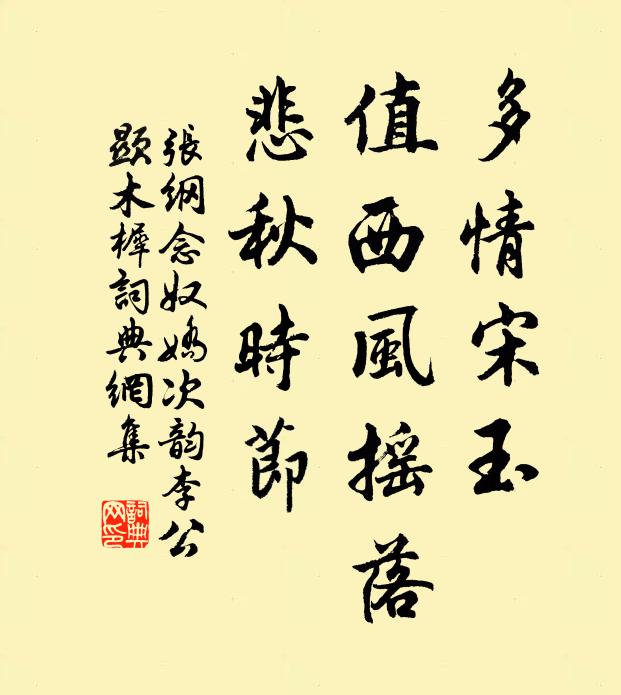 多情宋玉
值西風摇落
悲秋時節
張綱念奴嬌次韵李公
顯木樨詞典網集
詞典
网印